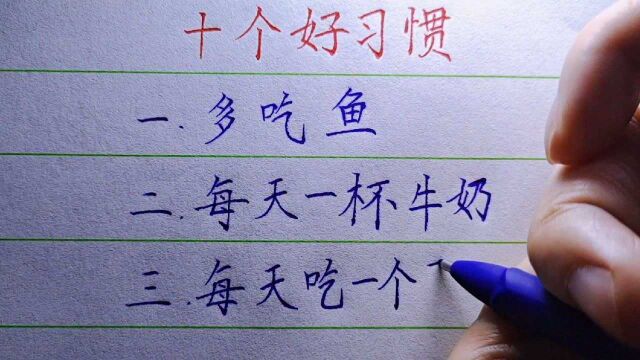 十个好习惯
一.多吃鱼
二.每天一杯牛奶
三.每天吃一个